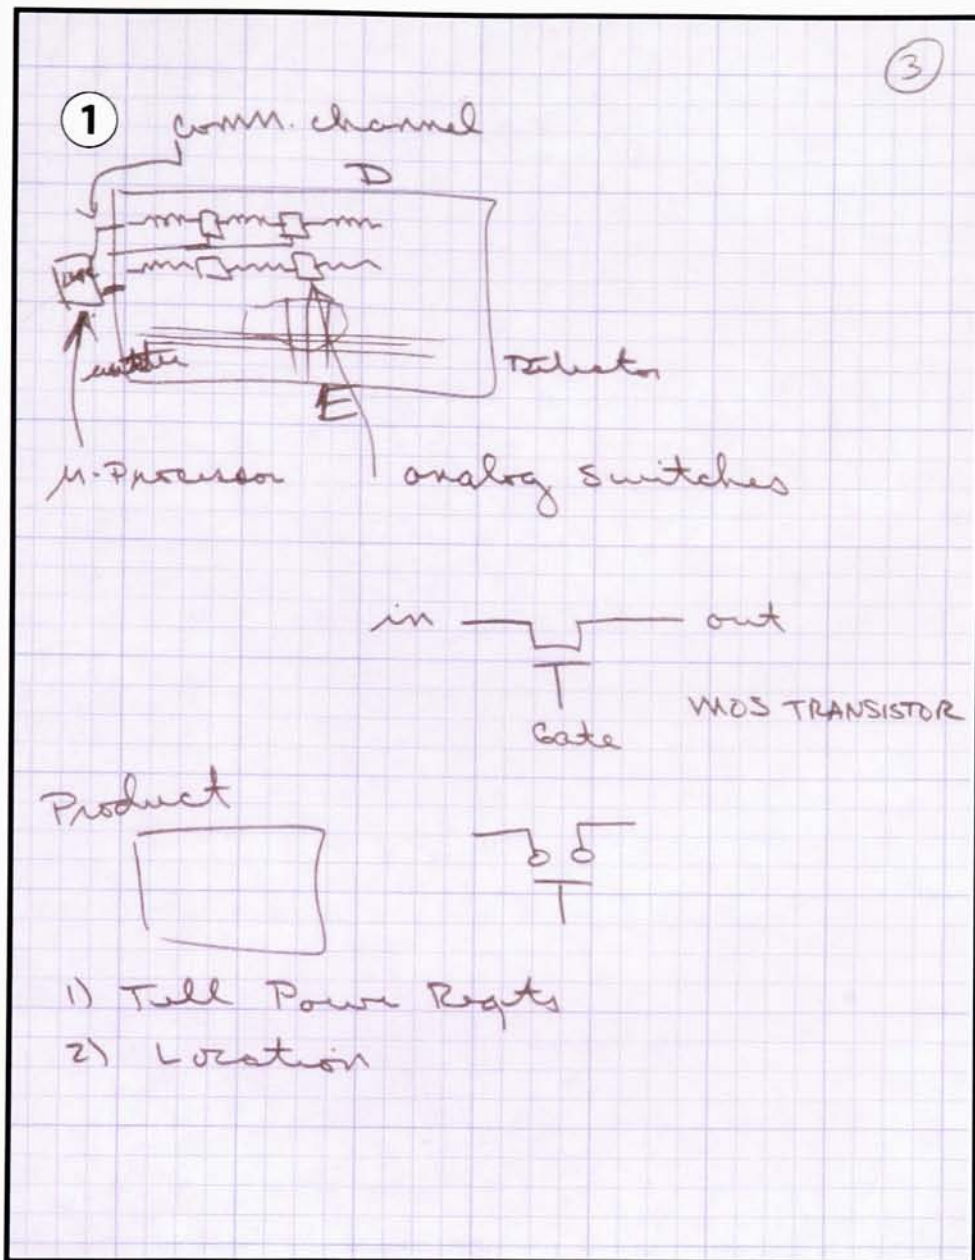 3
1
comm. channel
D
E
μ-Processor
analog switches
in
out
Gate
MOS TRANSISTOR
Product
1) Tell Power Reqts
2) Location